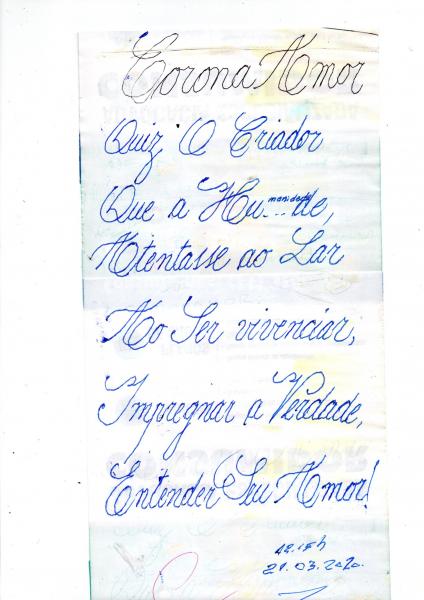 Corona Amor
Quiz O Criador
Que a Hu...manidade...de,
Atentasse ao Lar
Ao Ser vivenciar,
Impregnar a Verdade,
Entender Seu Amor!
12.15h
21.03.2020.